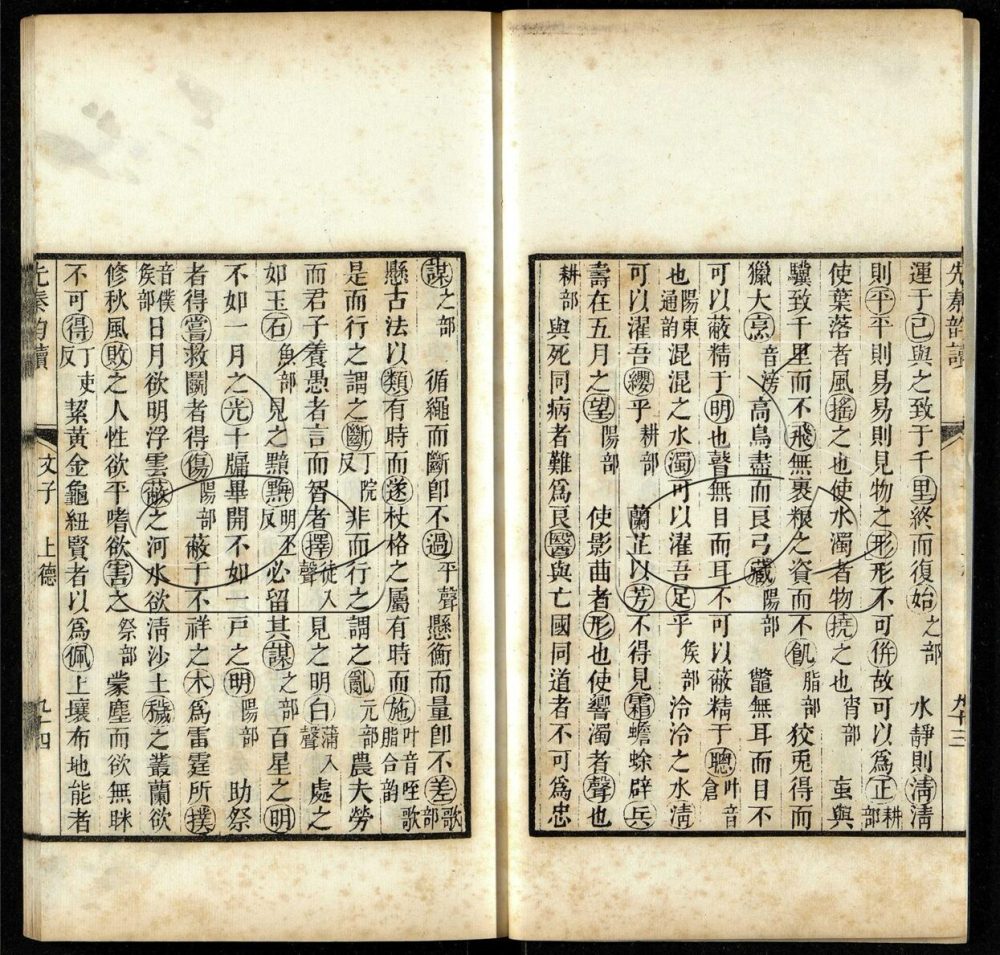 先秦韵讀
九十三
運于己與之致于千里終而復始之部　水靜則淸淸
則平平則易易則見物之形形不可併故可以爲正耕部
使葉落者風搖之也使水濁者物撓之也宵部　䖟與
驥致千里而不飛無裹粮之資而不飢脂部　狡兎得而
獵大烹音滂高鳥盡而良弓藏陽部　鼈無耳而目不
可以蔽精于明也瞽無目而耳不可以蔽精于聰叶音倉
也陽東通韵混混之水濁可以濯吾足乎矦部泠泠之水淸
可以濯吾纓乎耕部　蘭芷以芳不得見霜蟾蜍辟兵
壽在五月之望陽部　使影曲者形也使響濁者聲也
耕部　與死同病者難爲良醫與亡國同道者不可爲忠
謀之部　循繩而斷卽不過平聲懸衡而量卽不差歌部
懸古法以類有時而遂杖格之屬有時而施叶音咥歌脂合韵
是而行之謂之斷丁院反非而行之謂之亂元部　農夫勞
而君子養愚者言而智者擇徒入聲見之明白蒲入聲處之
如玉石魚部見之黯黮必留其謀之部　百星之明
不如一月之光十牖畢開不如一戶之明陽部　助祭
者得嘗救鬭者得傷陽部　蔽于不祥之木爲雷霆所撲
音僕矦部　日月欲明浮雲蔽之河水欲淸沙土穢之叢蘭欲
修秋風敗之人性欲平嗜欲害之祭部　蒙塵而欲無眯
不可得丁吏反　絜黃金龜紐賢者以爲佩土壤布地能者
先秦韵讀
文子　上德
九十四